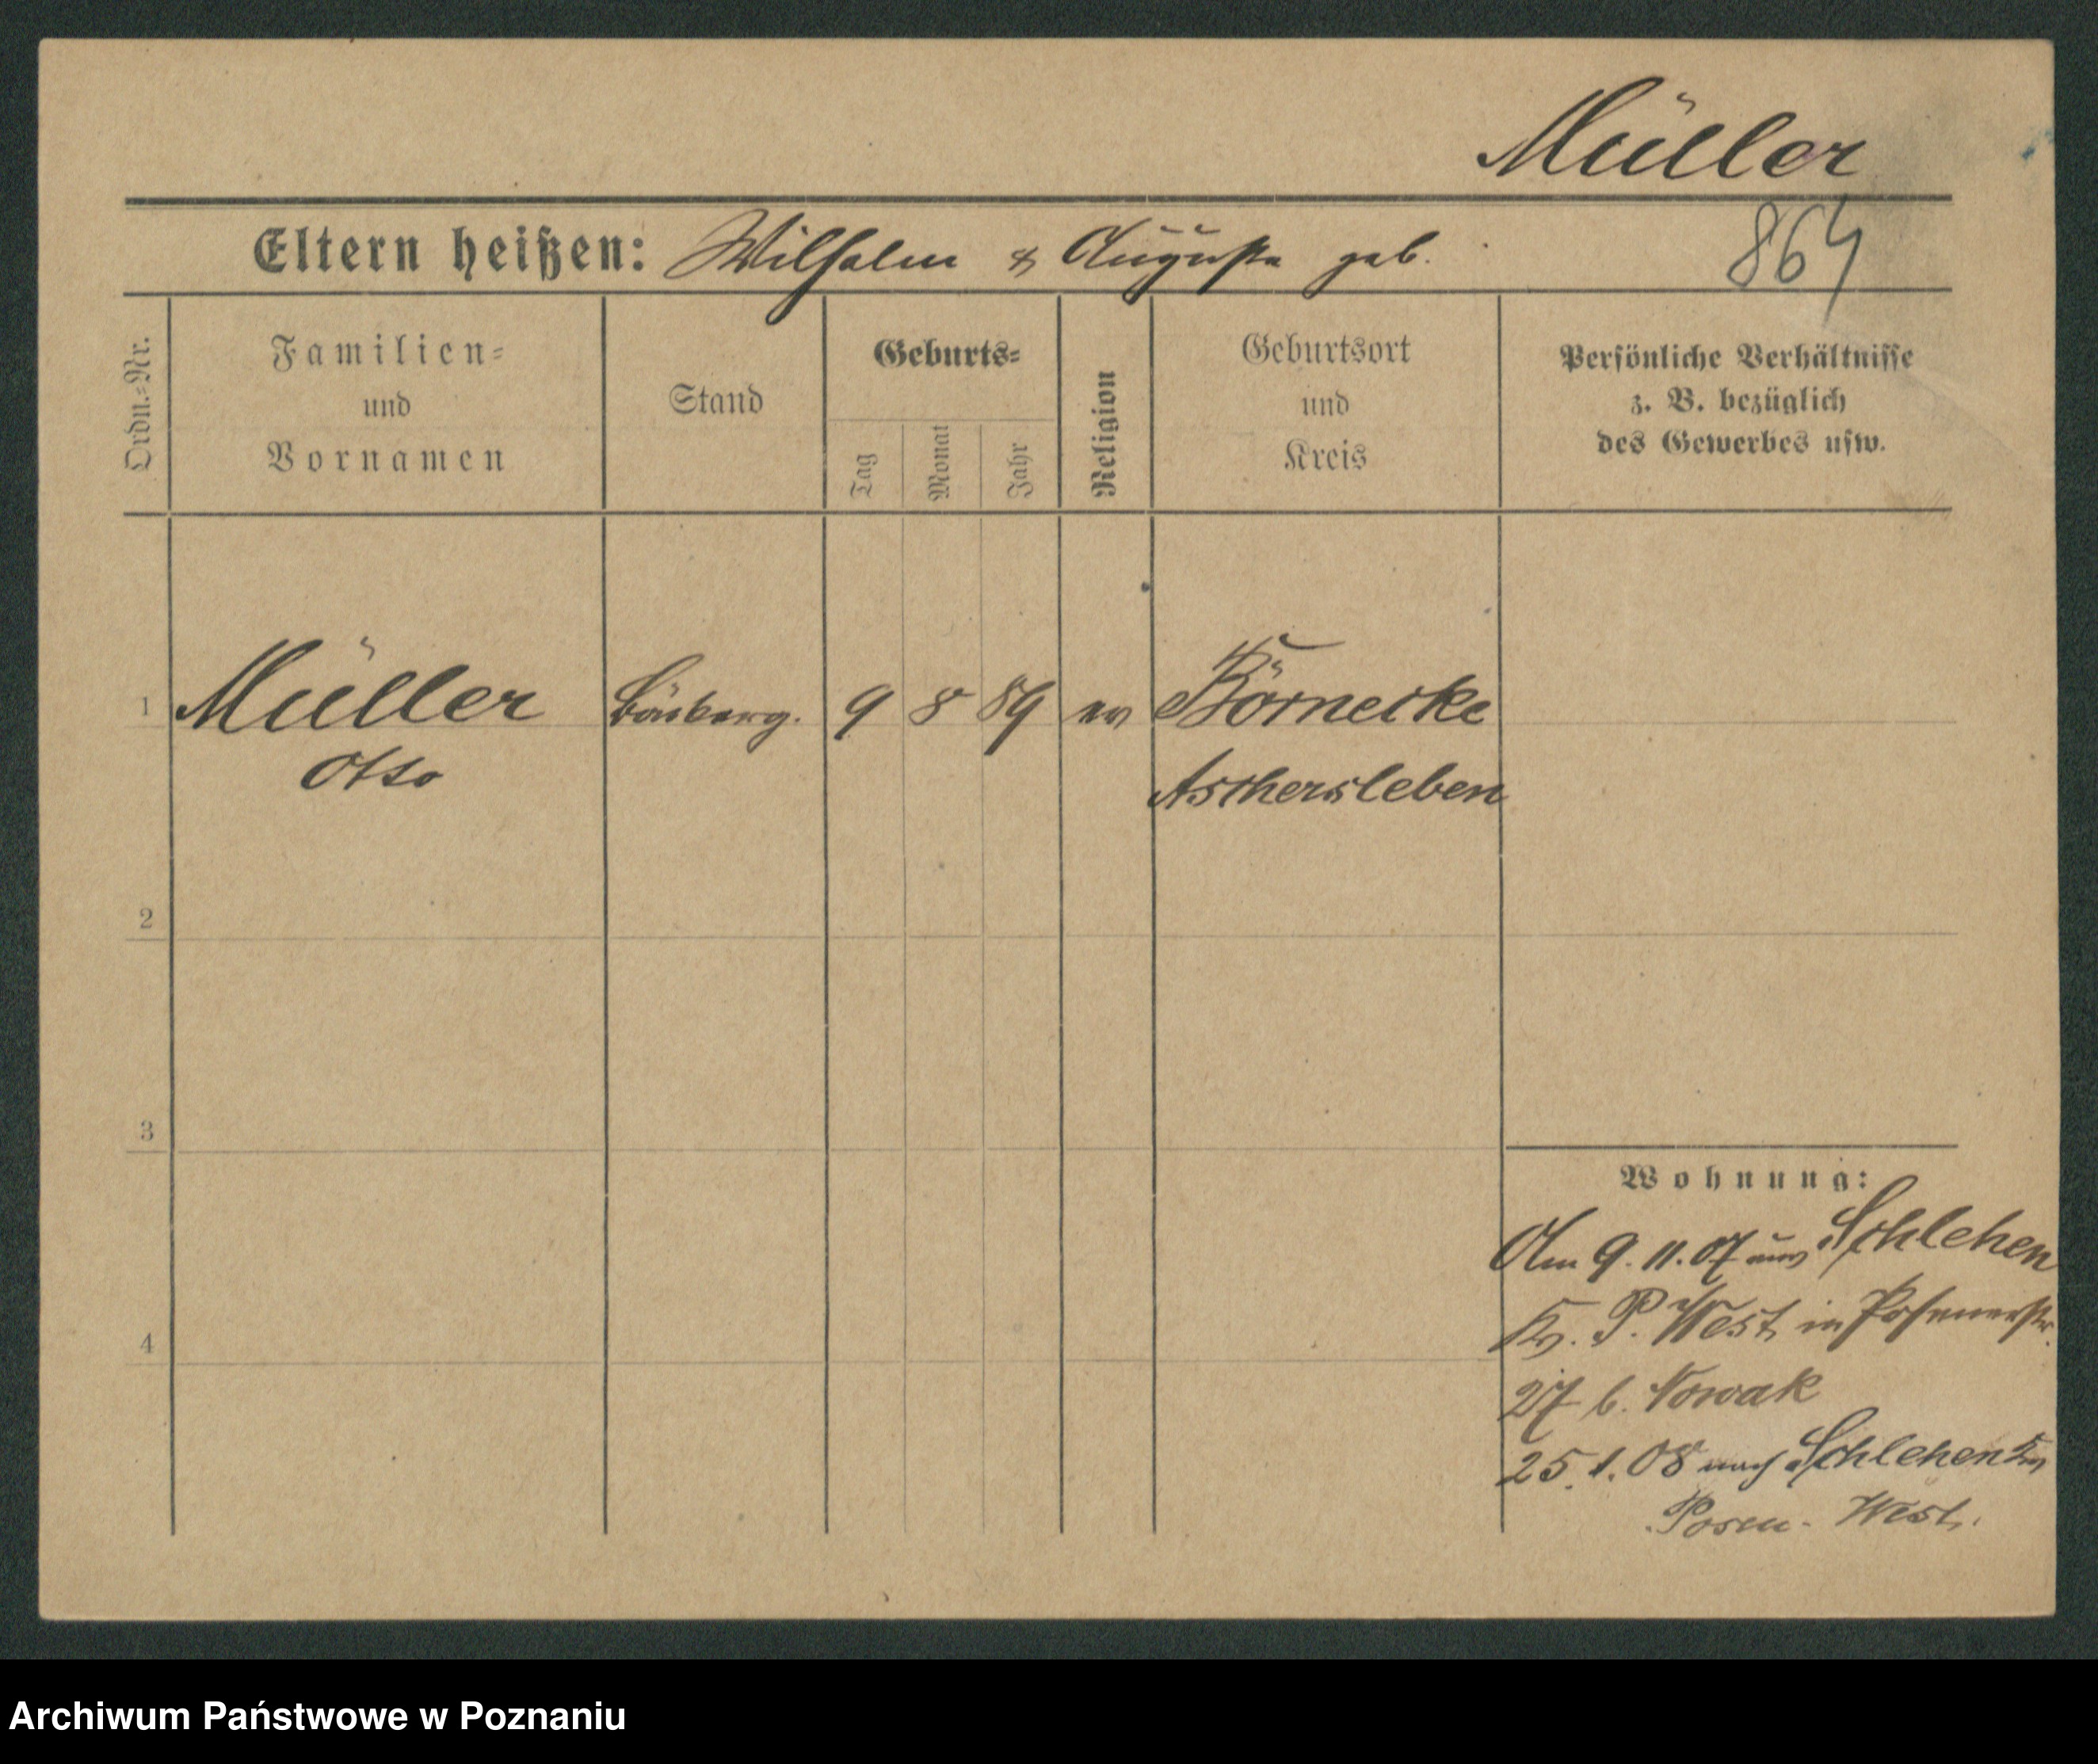 Müller
Eltern heißen: Wilhelm & Auguste geb.
864
Ordn.=Nr.
Familien=
und
Vornamen
Stand
Geburts=
Tag
Monat
Jahr
Religion
Geburtsort
und
Kreis
Persönliche Verhältnisse
z. B. bezüglich
des Gewerbes usw.
1 Müller 9 8 89 ev Börnecke
Otto Aschersleben
2
3
4
Wohnung:
Am 9.11.07 aus Schlehen
Kr. P. West in Posenerstr.
27 b. Nowak
25.1.08 nach Schlehen Kr
Posen - West.
Archiwum Państwowe w Poznaniu